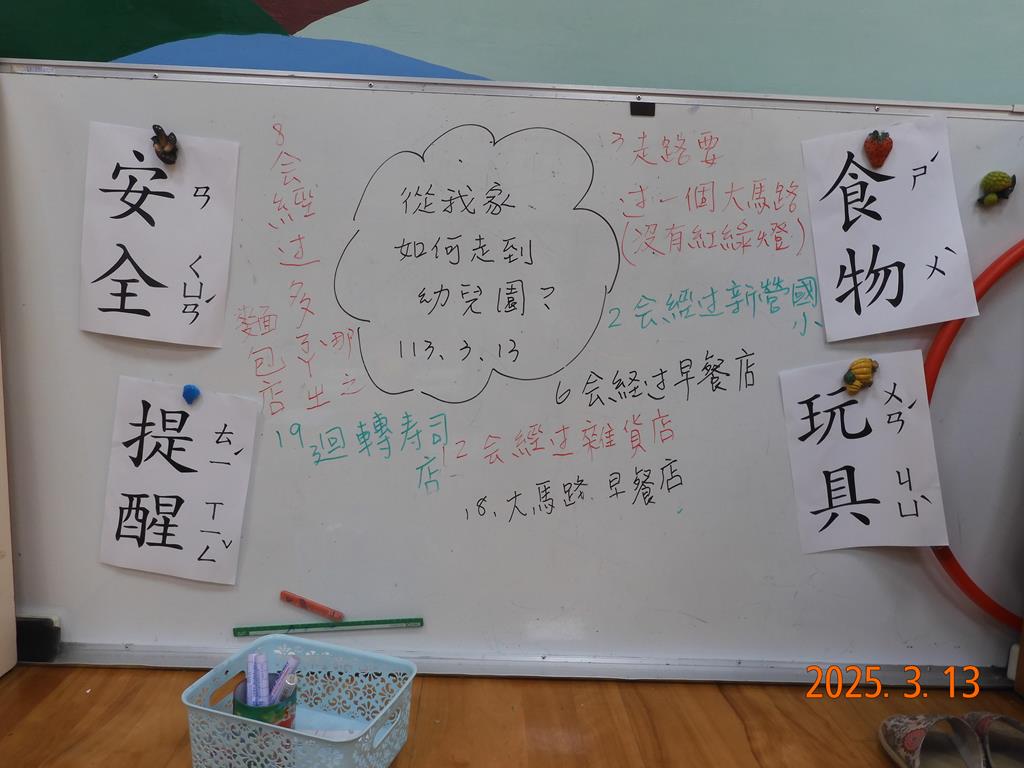 安 ㄢ
全 ㄑㄩㄢˊ
提 ㄊㄧˊ
醒 ㄒㄧㄥˇ
8会經过
多
那之
麵包店
從我家
如何走到
幼兒園?
113.3.13
3走路要
过一個大馬路
(沒有紅綠燈)
2会經过新營國
小
6会経过早餐店
12会經过雜貨店
18.大馬路、早餐店
19迴轉寿司
店
食 ㄕˊ
物 ㄨˋ
玩 ㄨㄢˊ
具 ㄐㄩˋ
2025. 3. 13